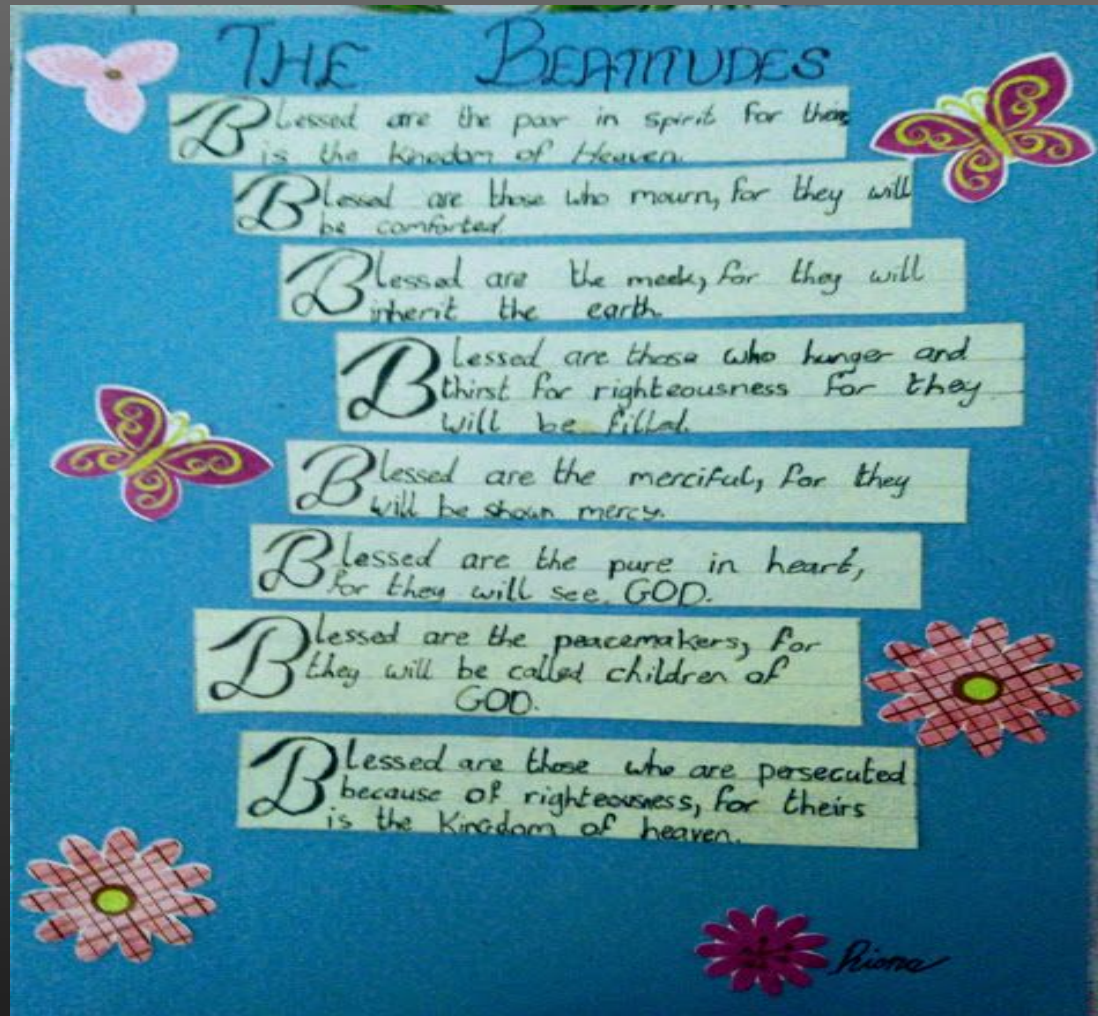 THE BEATITUDES
Blessed are the poor in spirit for theirs
is the Kingdom of Heaven.
Blessed are those who mourn, for they will
be comforted.
Blessed are the meek, for they will
inherit the earth.
Blessed are those who hunger and
thirst for righteousness for they
will be filled.
Blessed are the merciful, for they
will be shown mercy.
Blessed are the pure in heart,
for they will see GOD.
Blessed are the peacemakers, for
they will be called children of
GOD.
Blessed are those who are persecuted
because of righteousness, for theirs
is the Kingdom of heaven.